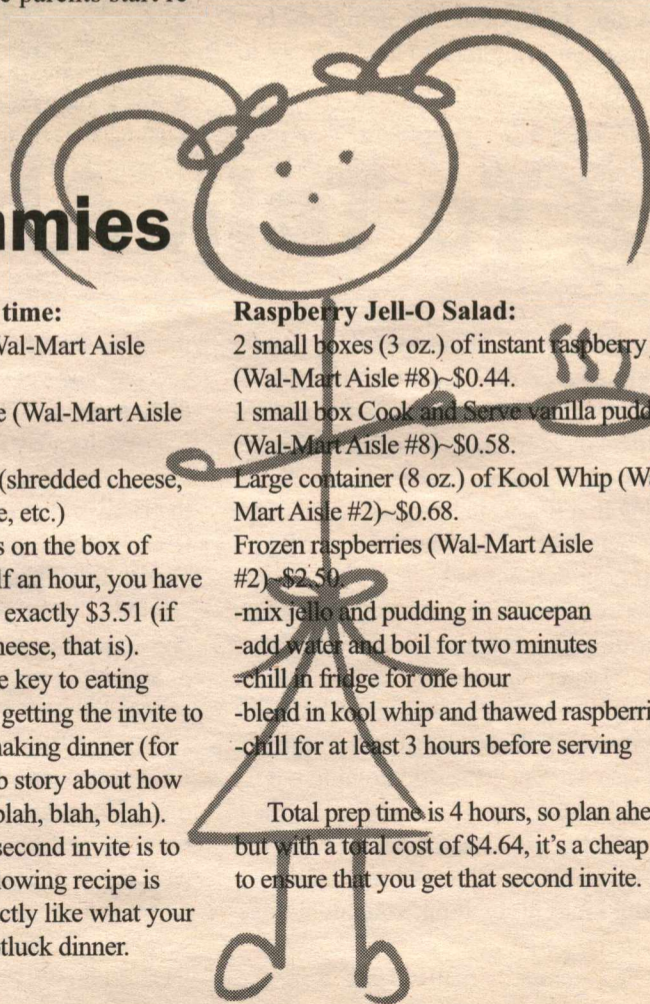 e parents start re-
mmies
time:
Wal-Mart Aisle
e (Wal-Mart Aisle
(shredded cheese,
e, etc.)
s on the box of
lf an hour, you have
exactly $3.51 (if
heese, that is).
e key to eating
getting the invite to
making dinner (for
b story about how
blah, blah, blah).
second invite is to
lowing recipe is
ctly like what your
tluck dinner.
Raspberry Jell-O Salad:
2 small boxes (3 oz.) of instant raspberry
(Wal-Mart Aisle #8)~$0.44.
1 small box Cook and Serve vanilla pudd
(Wal-Mart Aisle #8)~$0.58.
Large container (8 oz.) of Kool Whip (Wa
Mart Aisle #2)~$0.68.
Frozen raspberries (Wal-Mart Aisle
#2)~$2.50.
-mix jello and pudding in saucepan
-add water and boil for two minutes
-chill in fridge for one hour
-blend in kool whip and thawed raspberri
-chill for at least 3 hours before serving
Total prep time is 4 hours, so plan ahe
but with a total cost of $4.64, it's a cheap
to ensure that you get that second invite.